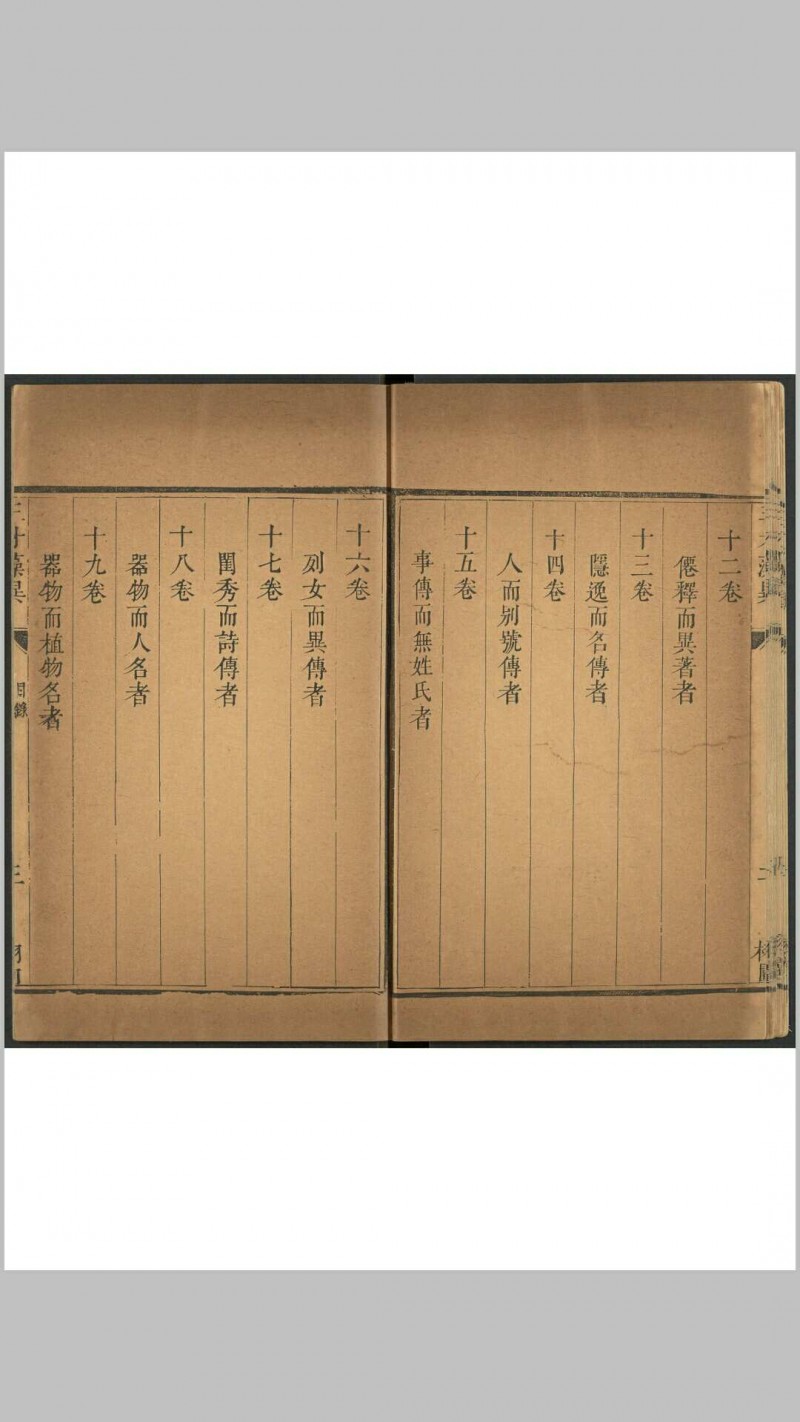 十二卷
僊釋而異著者
十三卷
隱逸而名傳者
十四卷
人而别號傳者
十五卷
事傳而無姓氏者
十六卷
列女而異傳者
十七卷
閨秀而詩傳者
十八卷
器物而人名者
十九卷
器物而植物名者
目錄
三